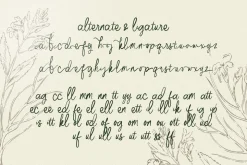 alternate & ligature
a b c d e f g h o j k l m n o p q r s t u v w x y z
a b c d e f g h i j k l m n o p q r s t u v w x y z
ag cc ll mm nn tt yy ac ad fa am att
ec ee ed fe el ell en ett il ill ik if ug yp
is itt kl el od of og om on ou ott oll ud
uf ul ull us ut utt ss ff